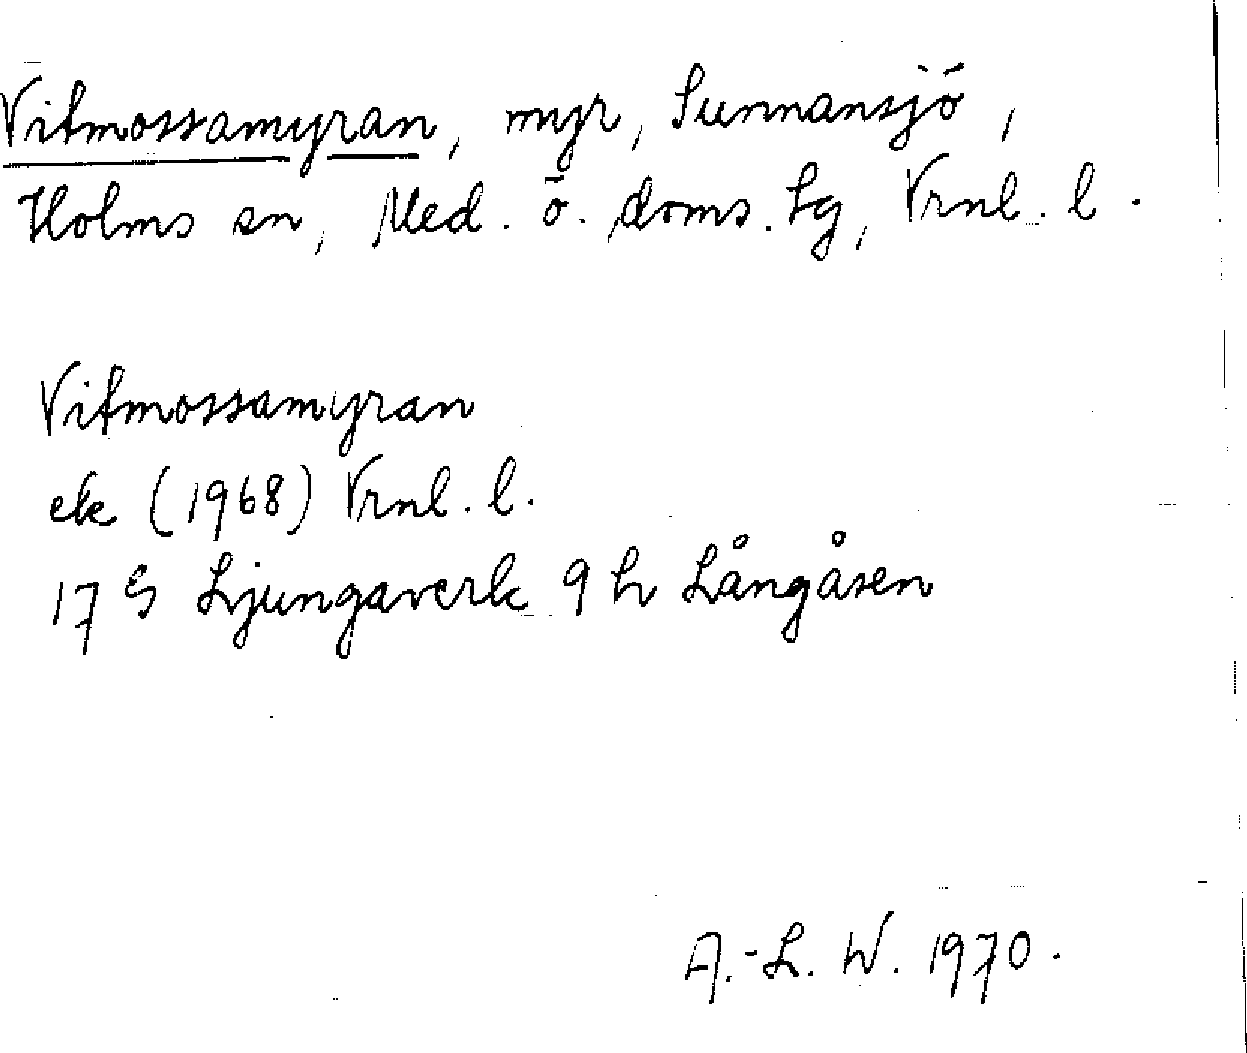 Vitmossamyran, myr, Sunnansjö,
Holms sn, Med. ö. doms. lg, Vrnl. l.
Vitmossamyran
ek (1968) Vrnl. l.
17 G Ljungaverk 9 h Långåsen
A.-L. W. 1970.